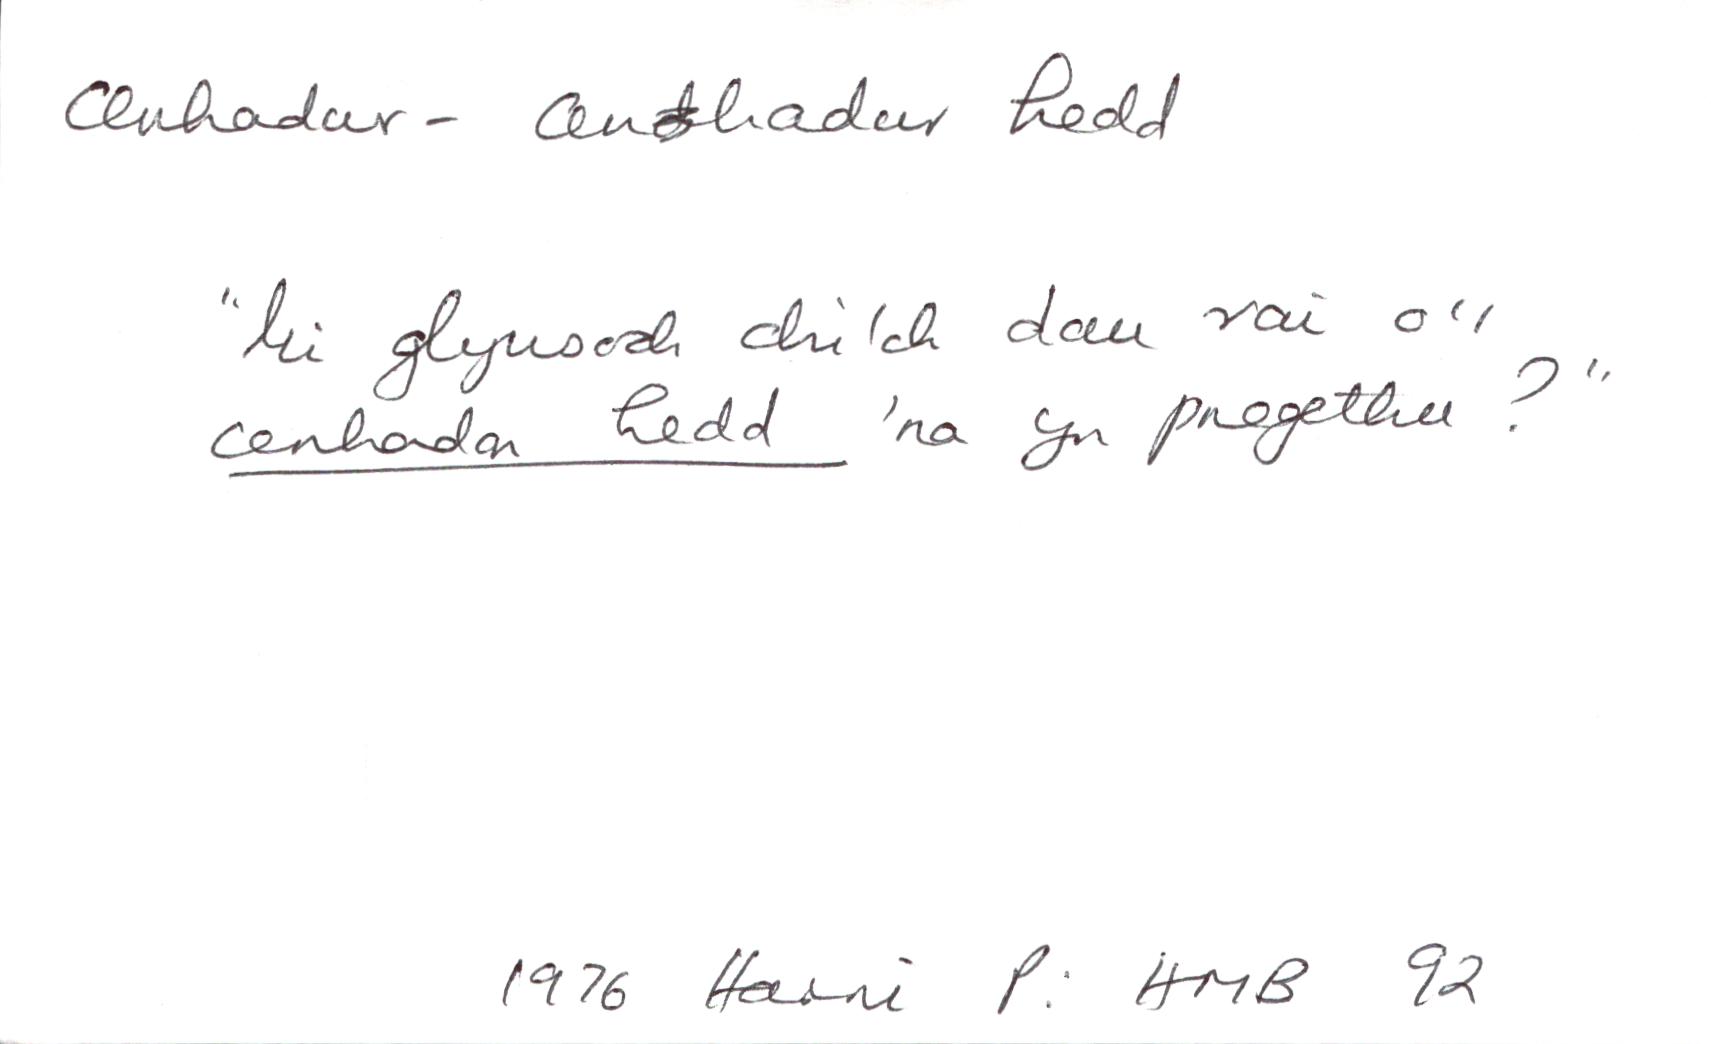 Cenhadwr - Cenhadwr hedd
"Ni glywsoch chi'ch dau rai o'r
cenhadon hedd 'na yn pregethu?"
1976 Harri P: HMB 92